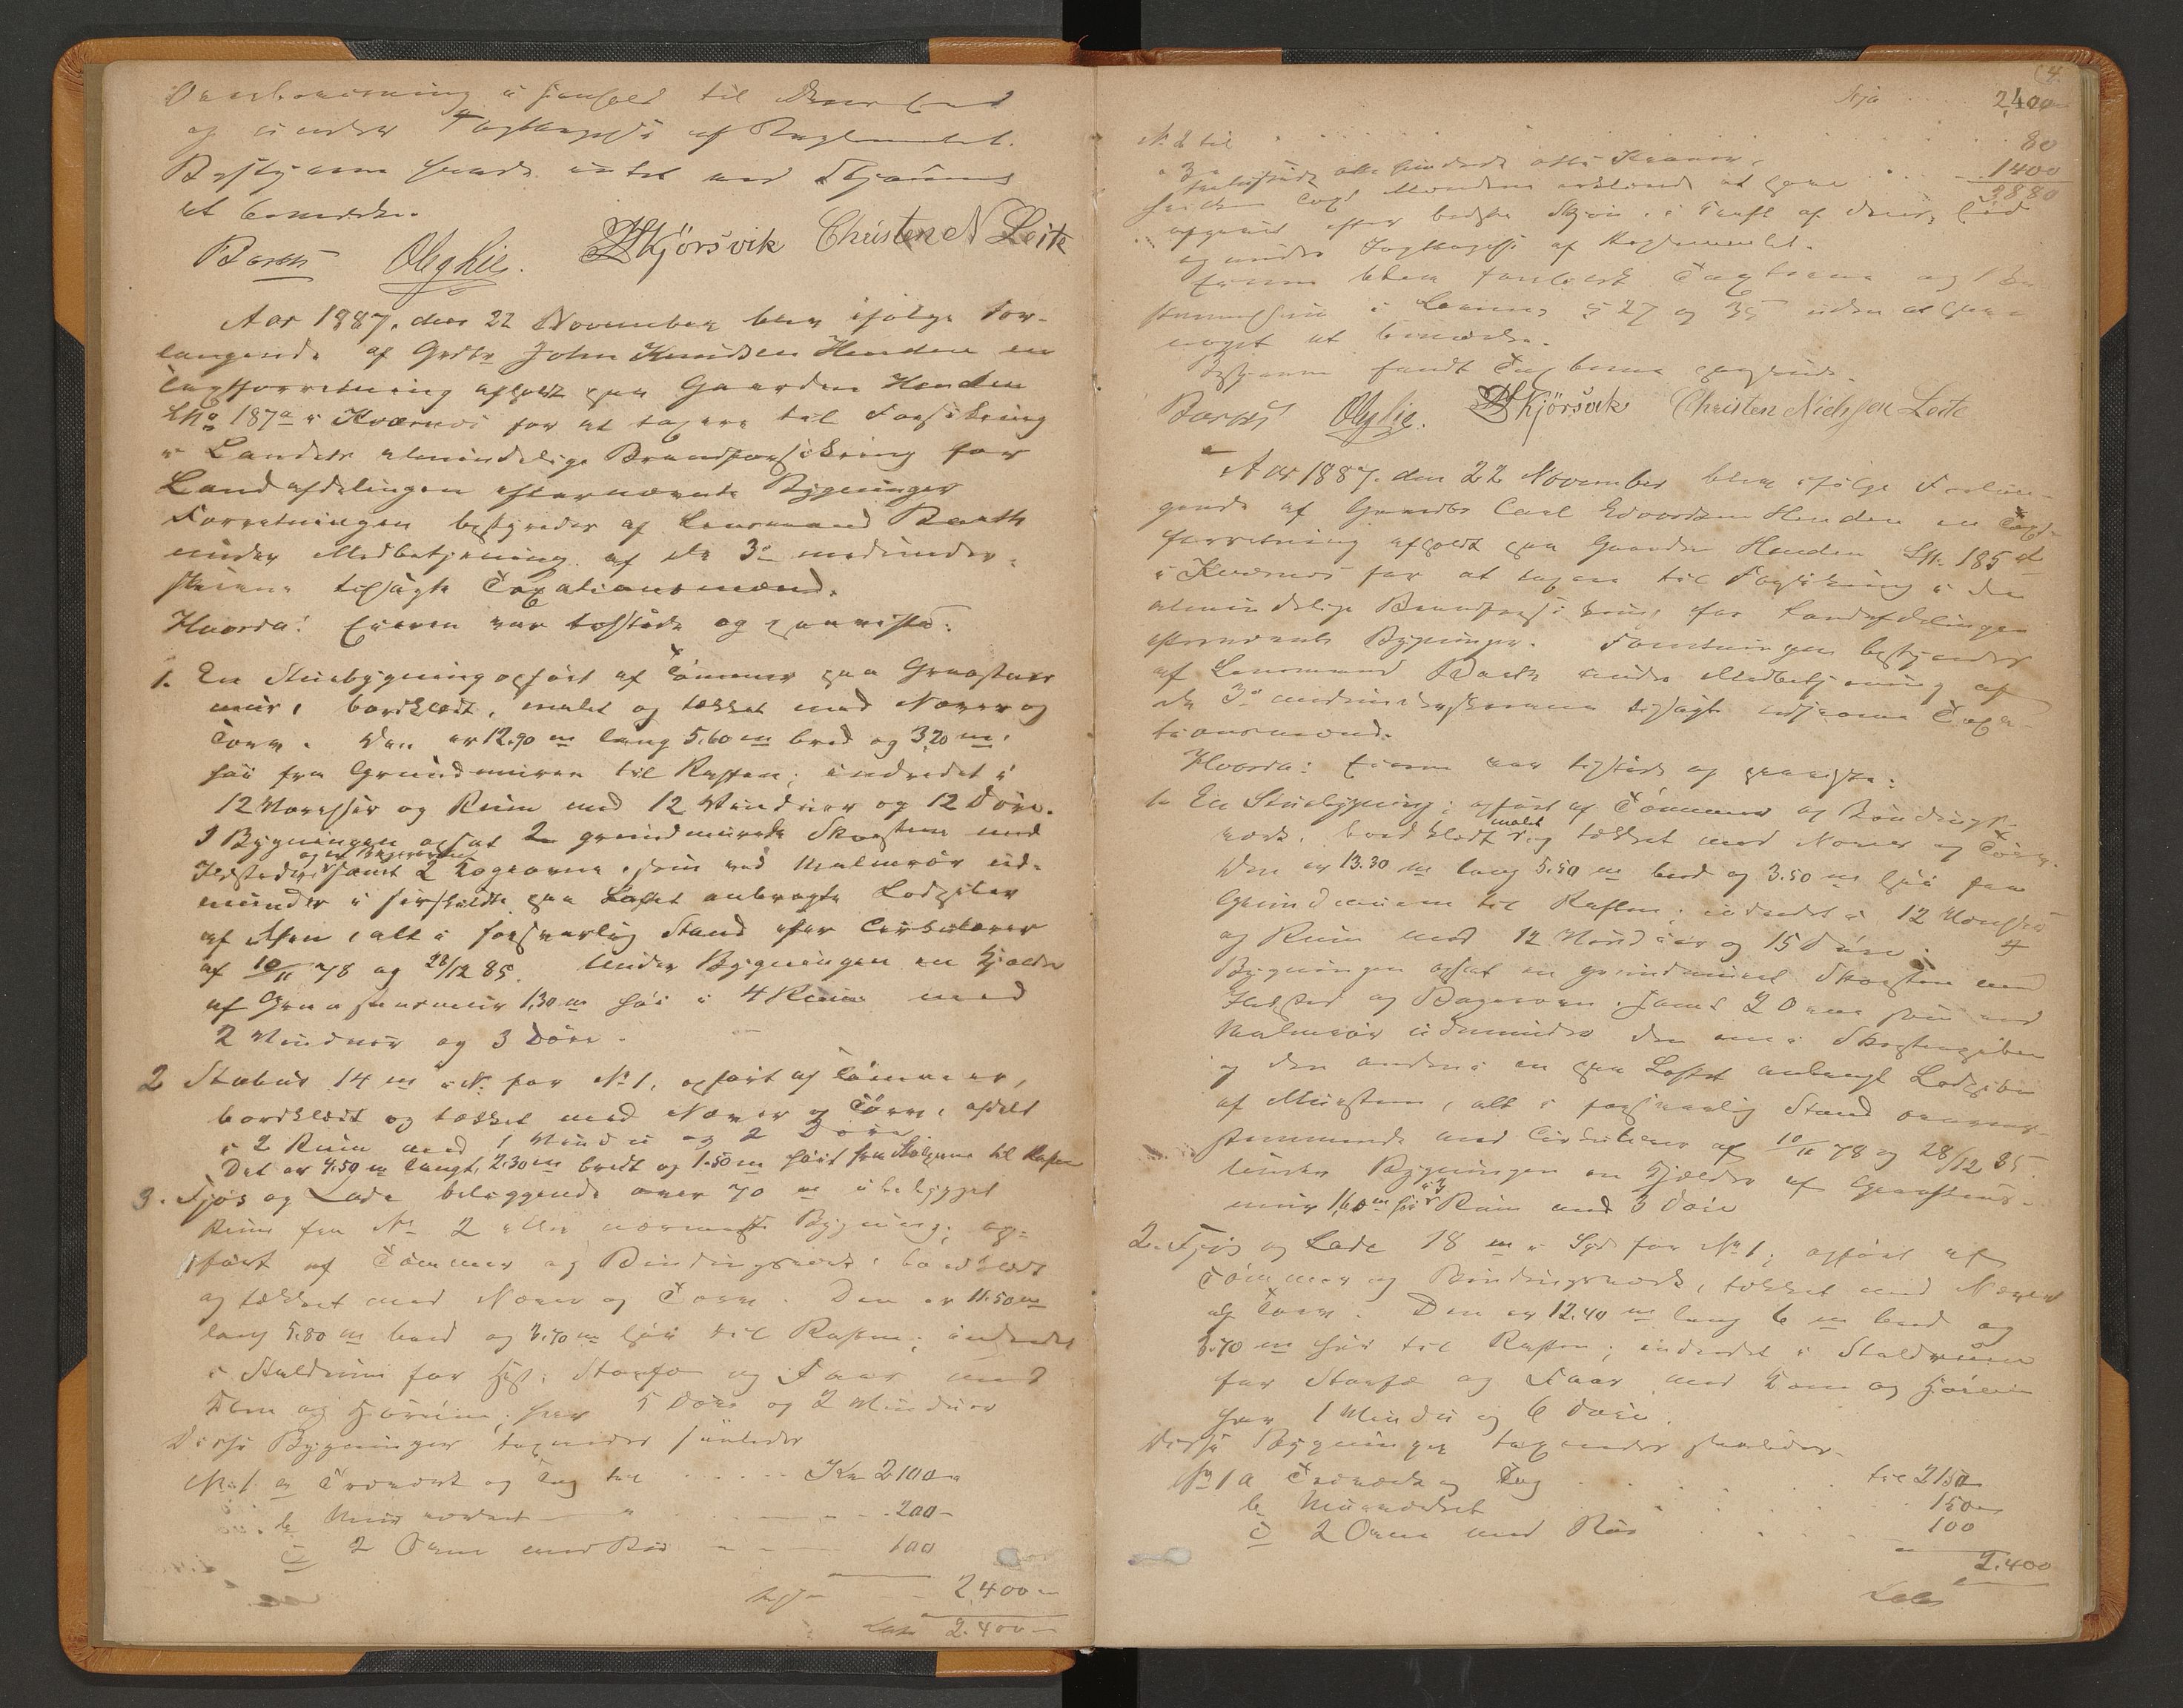 Overbevisning i Henhold til Deres Eed
og under Iagttagelse af Reglementet.
Bestyreren fandt intet ved Skjønnet
at bemærke.
Barth OlegLie. HKjörsvik Christen N Leite
Aar 1887, den 22 November blev ifølge For-
langende af Grdbr John Knudsen Henden en
Taxtforretning afholdt paa Gaarden Henden
LNo 187a i Kværnes for at taxere til Forsikring
i Landets almindelige Brandforsikring for
Landafdelingen efternævnte Bygninger
Forretningen bestyredes af Lensmand Barth
under Medbetjening af de 3de medunder-
skrevne tilsagte Taxationsmænd.
Hvorda: Eieren var tilstede og paaviste:
1. En Stuebygning opført af Tømmer paa Graasteens
mur, bordklædt, malet og tækket med Næver og
Torv. Den er 12,90 m lang 5,60 m bred og 3,20 m.
høi fra Grundmuren til Raften; indredet i
12 Værelser og Rum med 12 Vinduer og 12 Døre.
I Bygningen opsat 2 grundmurede Skorstene med
og en Bagerovn
Ildsteder samt 2 Kogeovne, som ved Malmrör ud-
munder i særskildte paa Loftet anbragte Lodpiber
af Musten, alt i forsvarlig Stand efter Cirkulærer
af 10/11 78 og 28/12 85. Under Bygningen en Kjælder
af Graasteensmur 1,30 m høi i 4 Rum med
2 Vinduer og 3 Døre.
2 Stabur 14 m i N. for No 1, opført af Tømmer,
bordklædt og tækket med Næver og Torv, afdelt
i 2 Rum med 1 Vindu og 2 Døre
Det er 4.50 m langt, 2.30 m bredt og 1.50 m høit fra Stolperne til Raften
3. Fjøs og Lade beliggende over 70 m ubebygget
Rum fra No 2 eller nærmeste Bygning, op-
ført af Tømmer og Bindingsværk, bordklædt
og tækket med Næver og Torv. Den er 11.50 m
lang 5.80 m bred og 3.70 m høi til Raften; indredet
i Staldrum for Hest, Storfæ og Faar med
Korn og Hørum; har 5 Døre og 2 Vinduer
Disse Bygninger taxeredes saaledes
No 1 a Træværk og Tag til . . . . . Kr 2100
b Murværket " . . . . . 200
c 2 Ovne med Rör . . . 100
2,400
Lates 2.400
4
Trp . . . . 2,400
No 2 til . . . . . . 80
" 3 " . . . . . 1400
3880
tretusinde otte hundrede otti Kroner.
hvilken Taxt Mændene erklærede at have
afgivet efter bedste Skjøn, i Kraft af deres Eed
og under Iagttagelse af Reglementet.
Eieren blev forelæst Taxterne og Be
stemmelserne i Lovens § 27 og 35 uden at have
noget at bemærke.
Bestyreren fandt Taxterne passende.
Barth OlegLie. HKjörsvik Christen Nielsen Leite
Aar 1887. den 22 November blev ifølge Forlan-
gende af Gaardbr Carl Edvardsen Henden en Taxt-
forretning afholdt paa Gaarden Henden LN. 185 a
i Kværnes for at taxere til Forsikring i den
almindelige Brandforsikring for Landafdelingen
efternævnte Bygninger. Forretningen bestyredes
af Lensmand Barth under Medbetjening af
de 3de medunderskrevne tilsagte edsvorne Taxa-
tionsmænd.
Hvorda: Eieren var tilstede og paaviste:
1. En Stuebygning; opført af Tømmer og Bindings-
malet
værk, bordklædt og tækket med Næver og Torv.
Den er 13.30 m lang 5.50 m bred og 3.50 m høi fra
Grundmuren til Raften; indredet i 12 Værelser
og Rum med 12 Vinduer og 15 Døre. I
Bygningen opsat en grundmuret Skorsten med
Ildsted og Bagerovn, samt 2 Ovne som ved
Malmrör udmunder den ene i Skorstenspiben
og den anden i en paa Loftet anbragt Lodpibe
af Mursten, alt i forsvarlig Stand overens-
stemmende med Cirkulærer af 10/11 78 og 28/12 85.
Under Bygningen en Kjælder af Graasteens-
i 3
mur 1,60 m høi Rum med 3 Døre
2. Fjøs og Lade 18 m i Syd for No 1; opført af
Tømmer og Bindingsværk, tækket med Næver
og Torv. Den er 12.40 m lang 6 m bred og
3.70 m høi til Raften; indredet i Staldrum
for Storfæ og Faar med Korn og Hørum
har 1 Vindu og 6 Døre.
Disse Bygninger taxeredes saaledes.
No 1 a Træværk og Tag . . . . til 2150
b Murværket . . . . 150
c 2 Ovne med Rör . . . . 100
2.400
Lates